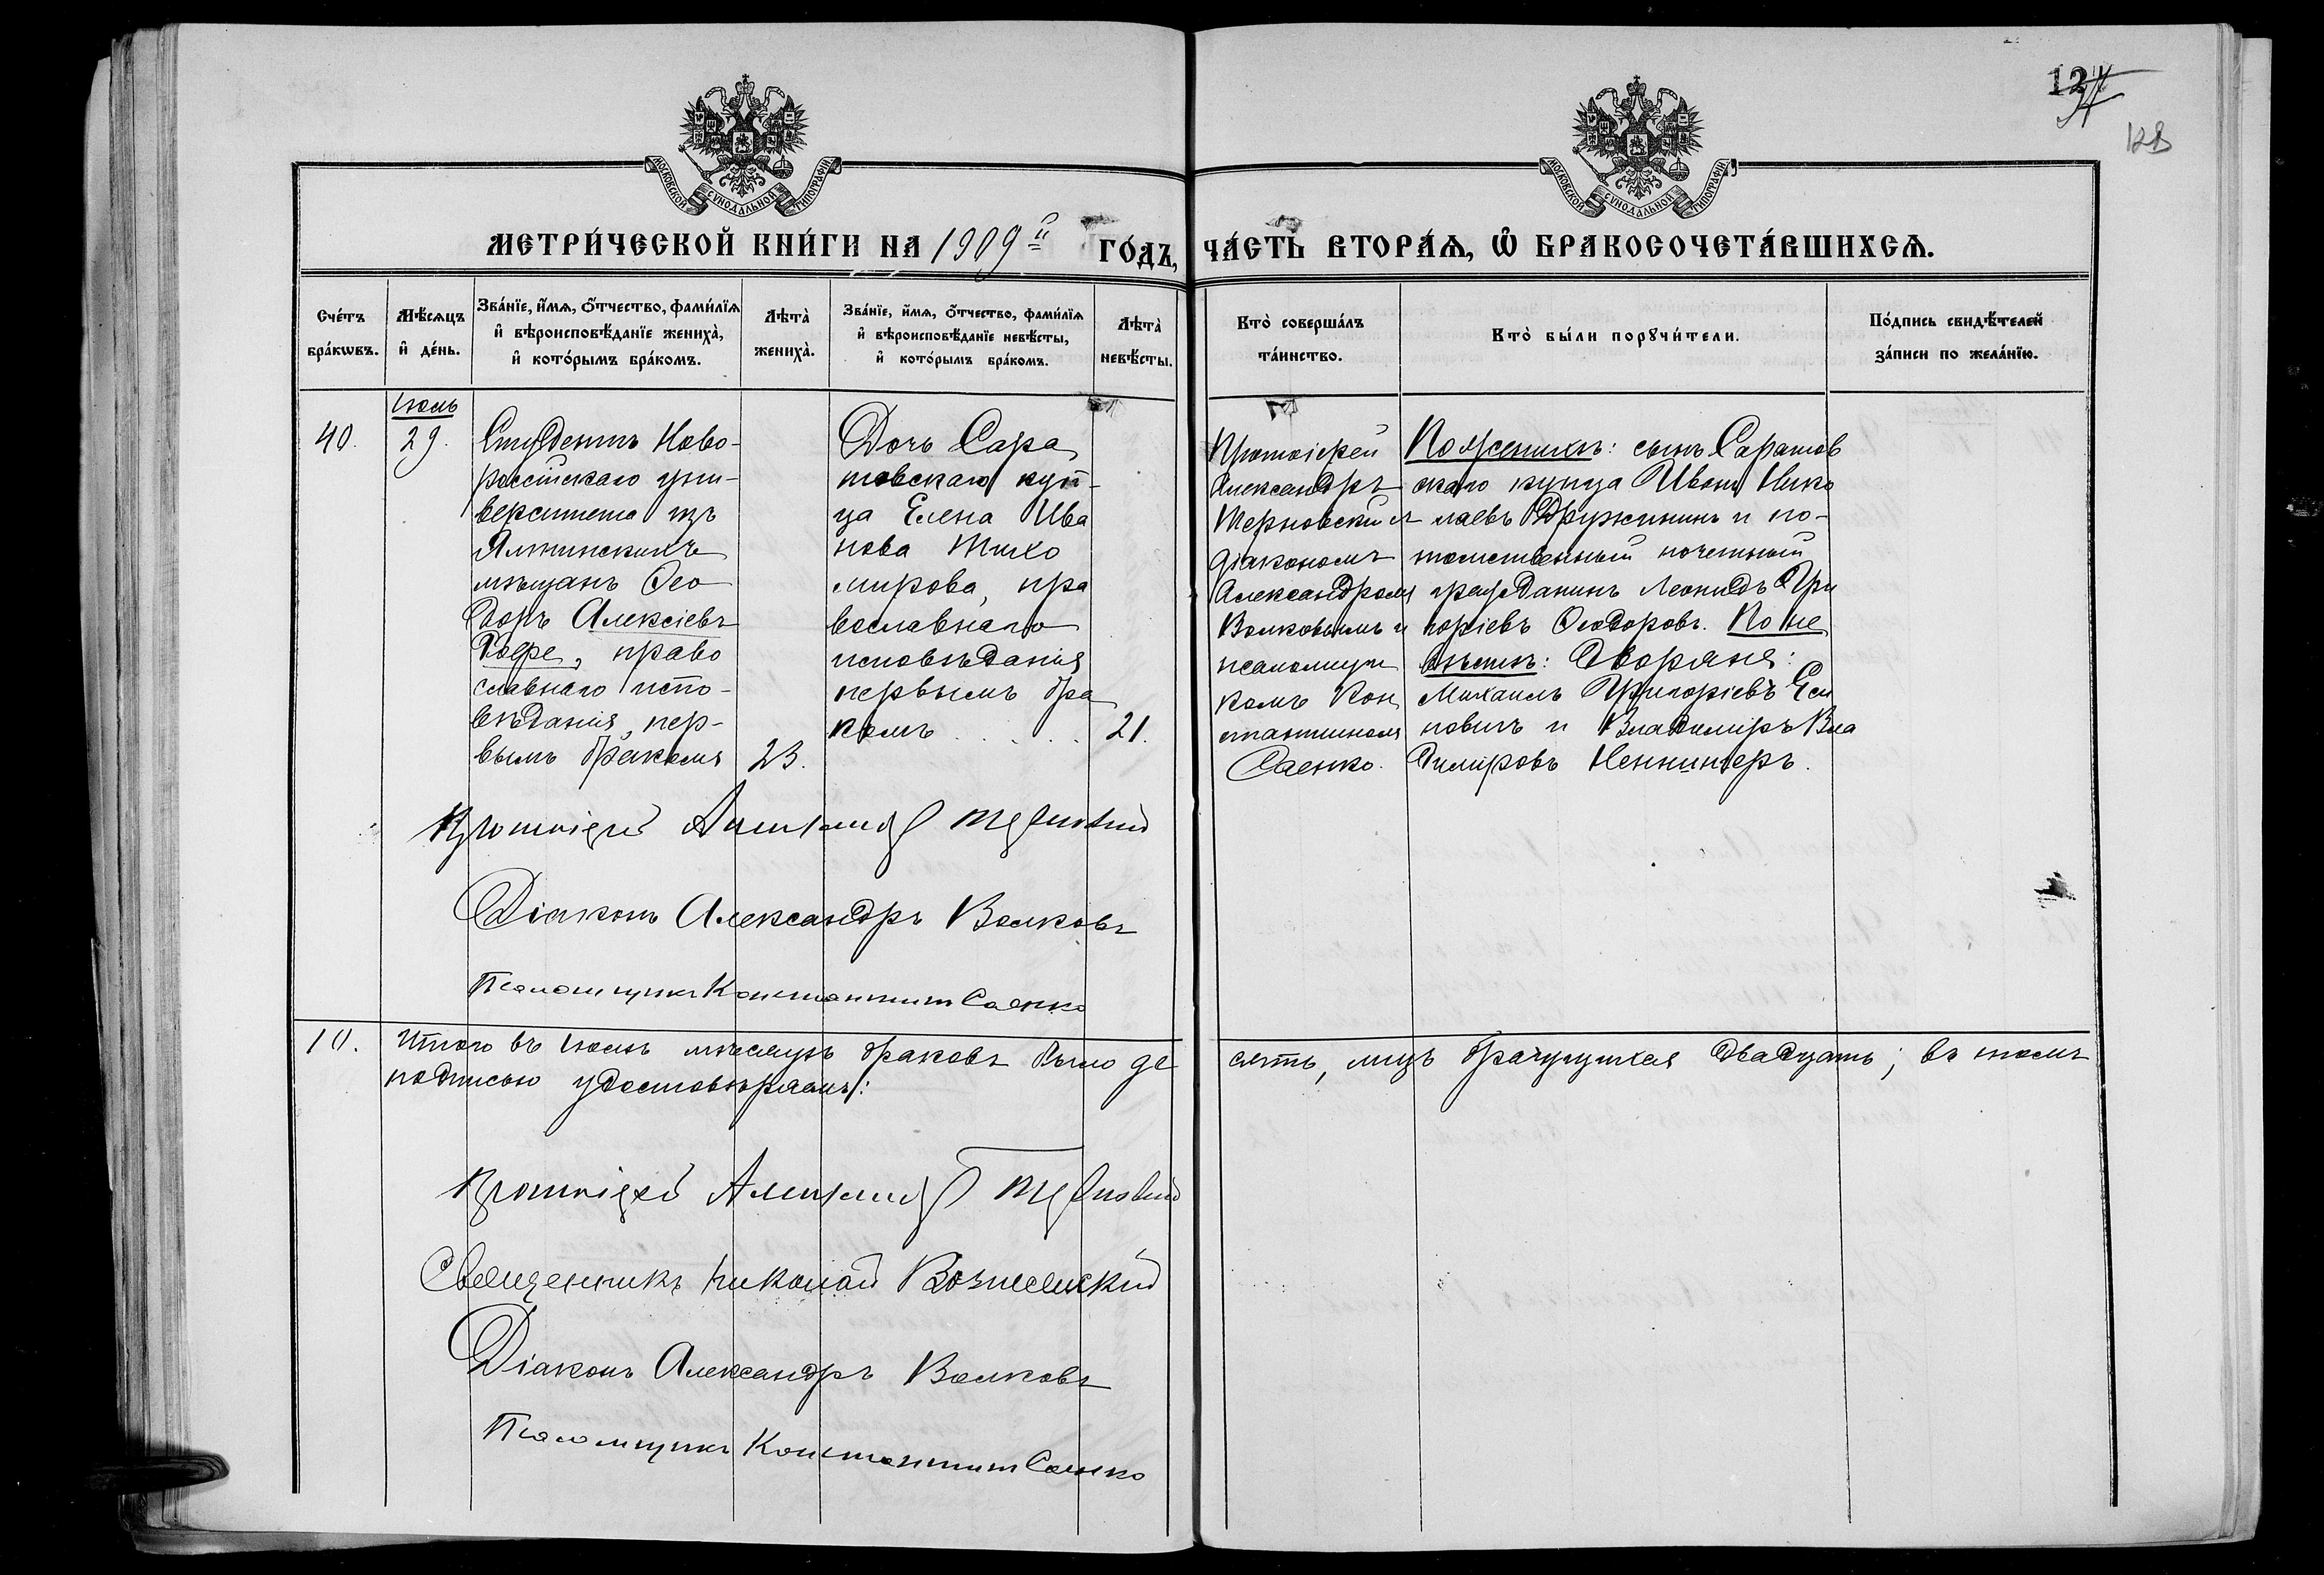 124
128
МОСКОВСКОЙ СѴНОДАЛЬНОЙ ТИПОГРАФІИ
МОСКОВСКОЙ СѴНОДАЛЬНОЙ ТИПОГРАФІИ
МЕТРИ́ЧЕСКОЙ КНИ́ГИ НА 1909й ГО́ДЪ, ЧА́СТЬ ВТОРА́Ѧ, Ѽ БРАКОСОЧЕТА́ВШИХСѦ.
Сче́тъ бра́кѡвъ.
Мѣ́сѧцъ и҆ де́нь.
Зва́нїе, и҆́мѧ, ѻ҆́тчество, фами́лїѧ
и҆ вѣроисповѣ́данїе жениха̀,
и҆ кото́рымъ бра́комъ.
Лѣта̀ жениха̀.
Зва́нїе, и҆́мѧ, ѻ҆́тчество, фами́лїѧ
и҆ вѣроисповѣ́данїе невѣ́сты,
и҆ кото́рымъ бра́комъ.
Лѣта̀ невѣ́сты.
Кто̀ соверша́лъ та́инство.
Кто̀ бы́ли порꙋчи́тели.
По́дпись свидѣ́телей за́писи по жела́нїю.
40.
Іюль
29.
Студентъ Ново-
россійскаго уни-
верситета изъ
Ялтинскихъ
мѣщанъ Ѳео
доръ Алексіевъ
Роефе, право
славнаго испо-
вѣданія, пер-
вымъ бракомъ
23.
Дочь Сара
товскаго куп-
ца Елена Ива
нова Тихо
мирова, пра
вославнаго
исповѣданія
первымъ бра
комъ . . . .
21.
Протоіерей
Александръ
Терновскій съ
діакономъ
Александромъ
Волковымъ и
псаломщи
комъ Кон
стантиномъ
Саенко.
По женихѣ: сынъ Саратов
скаго купца Иванъ Нико
лаевъ Дружининъ и по-
томственный почетный
гражданинъ Леонидъ Гри
горіевъ Ѳеодоровъ. По не
вѣстѣ: Дворяне:
Михаилъ Григоріевъ Еси
повичъ и Владиміръ Вла
диміровъ Неннингеръ.
Протоіерей Александръ Терновскій
Діаконъ Александръ Волковъ
Псаломщикъ Константинъ Саенко
10.
Итого въ Іюлѣ мѣсяцѣ браковъ было де
сять, лицъ брачущихся двадцать; въ томъ
подписью удостовѣряемъ:
Протоіерей Александръ Терновскій
Священникъ Николай Вознесенскій
Діаконъ Александръ Волковъ
Псаломщикъ Константинъ Саенко